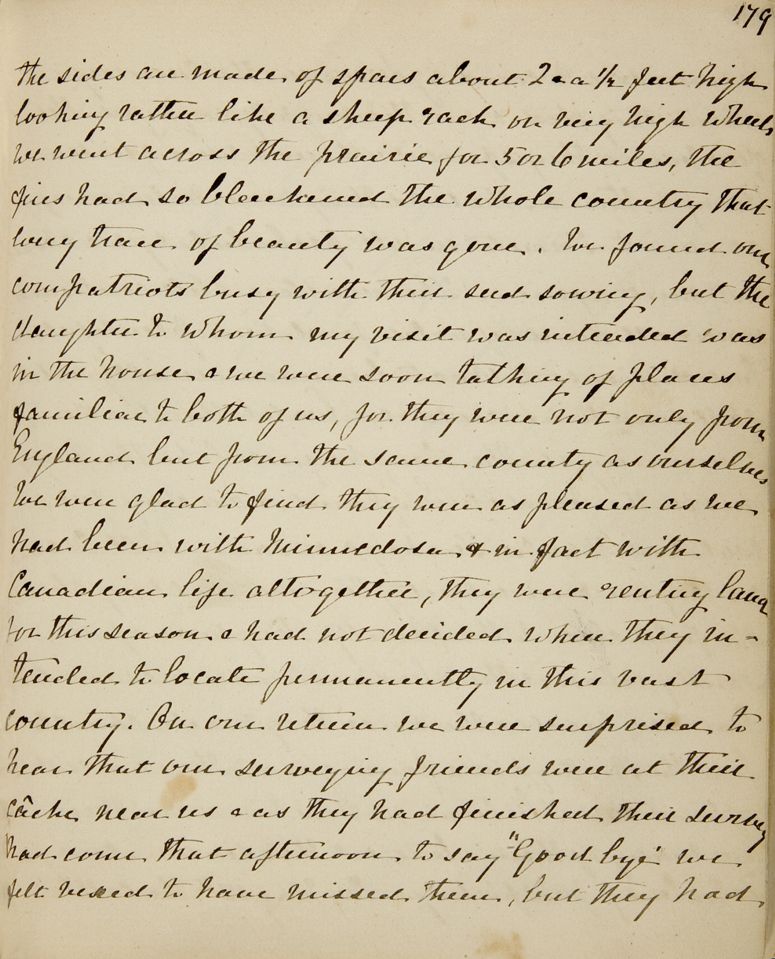 179
the sides are made of spars about 2 & a ½ feet high
looking rather like a sheep rack on very high wheels
we went across the prairie for 5 or 6 miles, the
fires had so blackened the whole country that
every trace of beauty was gone. We found our
compatriots busy with their seed sowing, but the
daughter to whom my visit was intended was
in the house & we were soon talking of places
familiar to both of us, for they were not only from
England but from the same county as ourselves
We were glad to find they were as pleased as we
had been with Minnedosa & in fact with
Canadian life altogether, they were renting land
for this season & had not decided where they in-
tended to locate permanently in this vast
country. On our return we were surprised to
hear that our surveying friends were at their
câche near us & as they had finished their survey
had come that afternoon to say "Good bye" we
felt vexed to have missed them, but they had